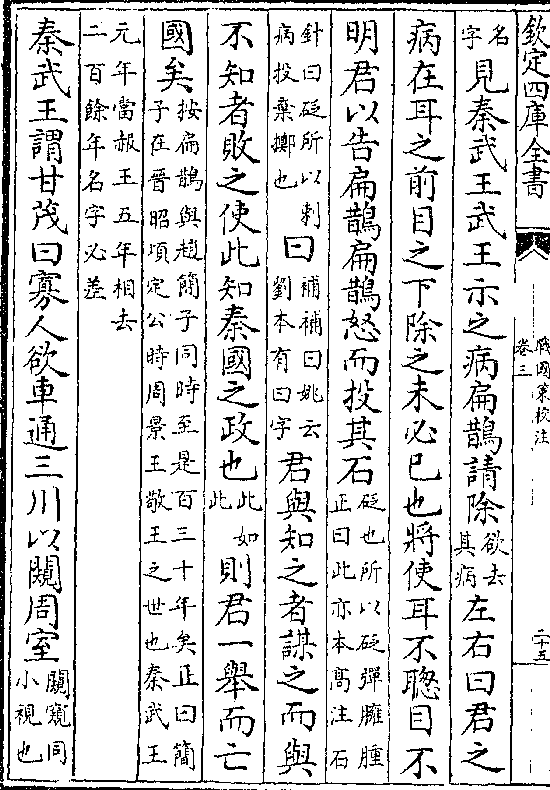 欽定四庫全書
戰國策校注
卷三
二十五
名字見秦武王武王示之病扁鵲請除欲去其病左右曰君之
病在耳之前目之下除之未必已也將使耳不聰目不
明君以告扁鵲扁鵲怒而投其石砭也所以砭彈臃腫正曰此亦本髙注石
針曰砭所以刺病投棄擲也曰補補曰姚云劉本有曰字君與知之者謀之而與
不知者敗之使此知秦國之政也此如此則君一舉而亡
國矣按扁鵲與趙簡子同時至是百三十年矣正曰簡子在晉昭頃定公時周景王敬王之世也秦武王
元年當赧王五年相去二百餘年名字必差
秦武王謂甘茂曰寡人欲車通三川以闚周室闚窺同小視也